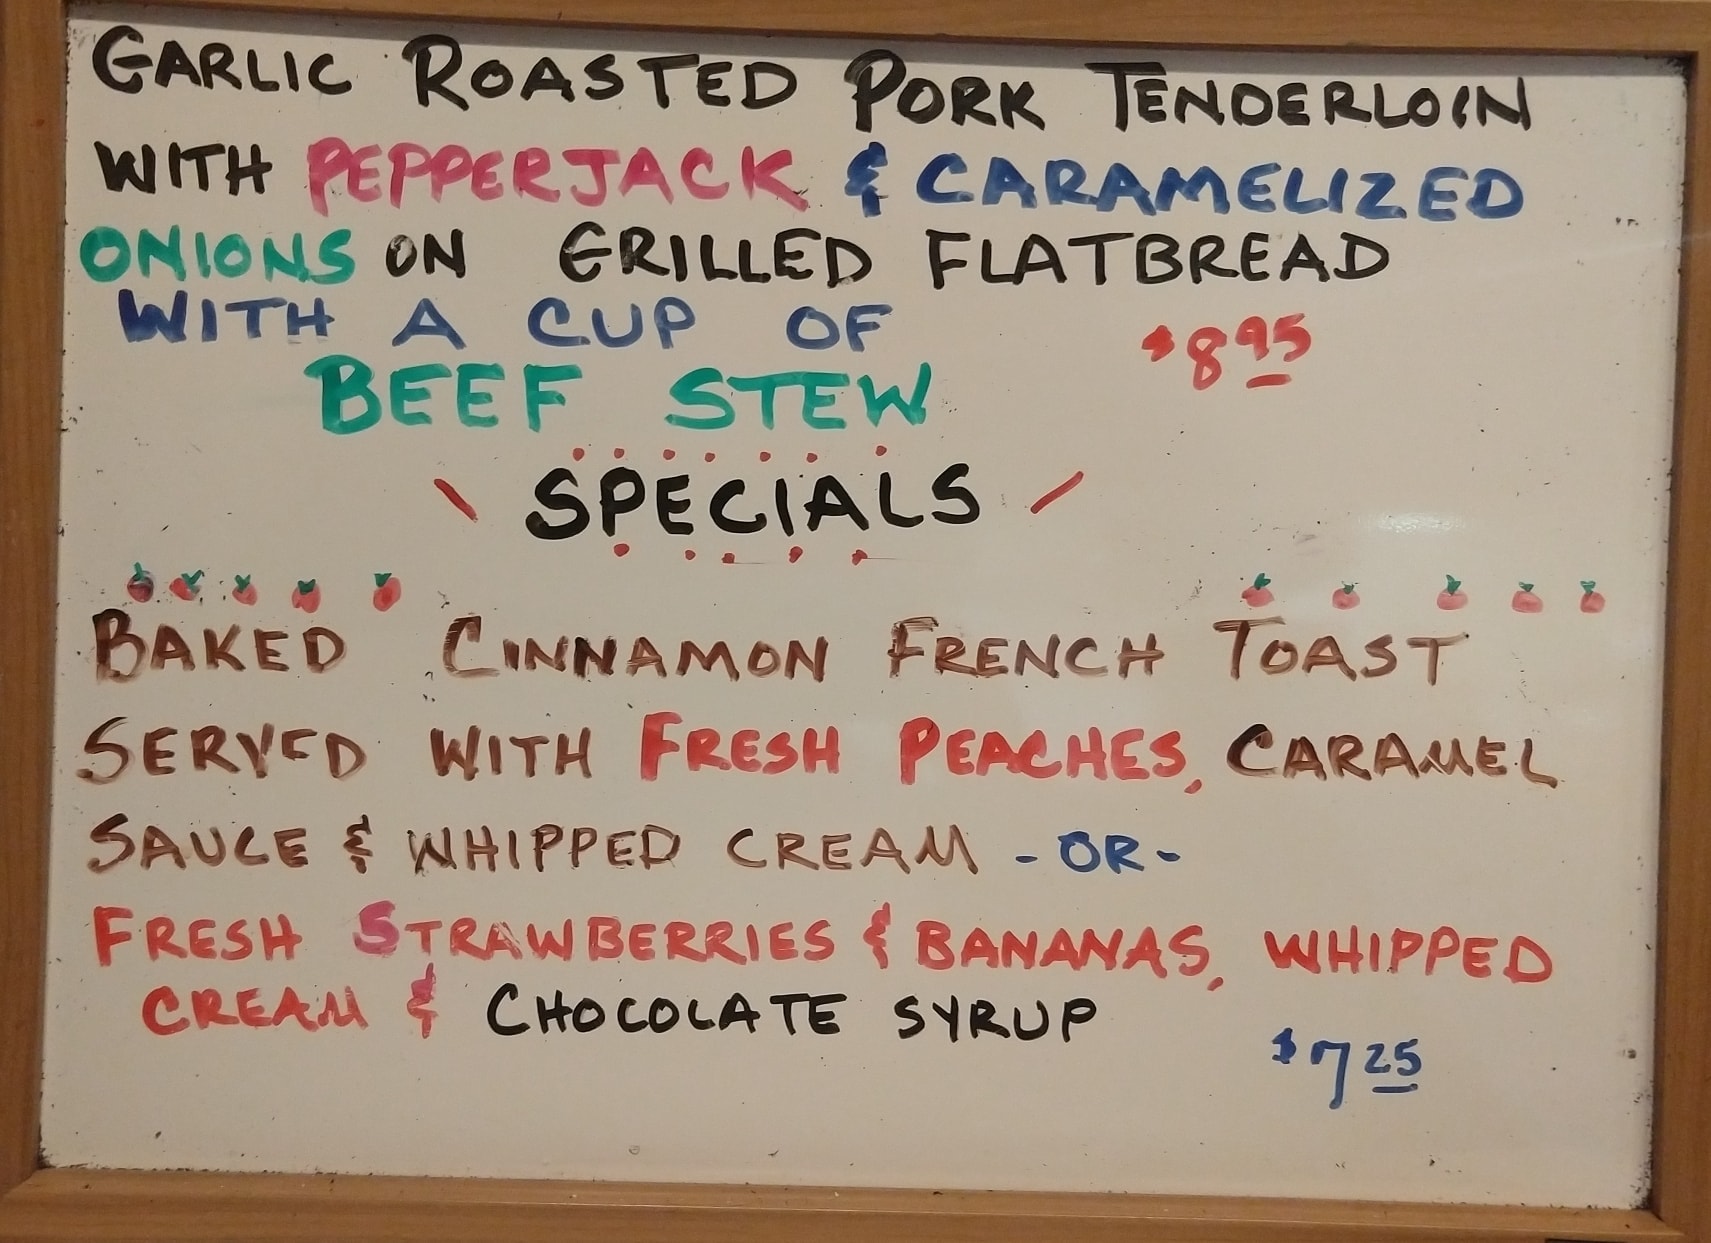 GARLIC ROASTED PORK TENDERLOIN
WITH PEPPERJACK & CARAMELIZED
ONIONS ON GRILLED FLATBREAD
WITH A CUP OF
$8.95
BEEF STEW
SPECIALS
BAKED CINNAMON FRENCH TOAST
SERVED WITH FRESH PEACHES, CARAMEL
SAUCE & WHIPPED CREAM -OR-
FRESH STRAWBERRIES & BANANAS, WHIPPED
CREAM & CHOCOLATE SYRUP
$7 25